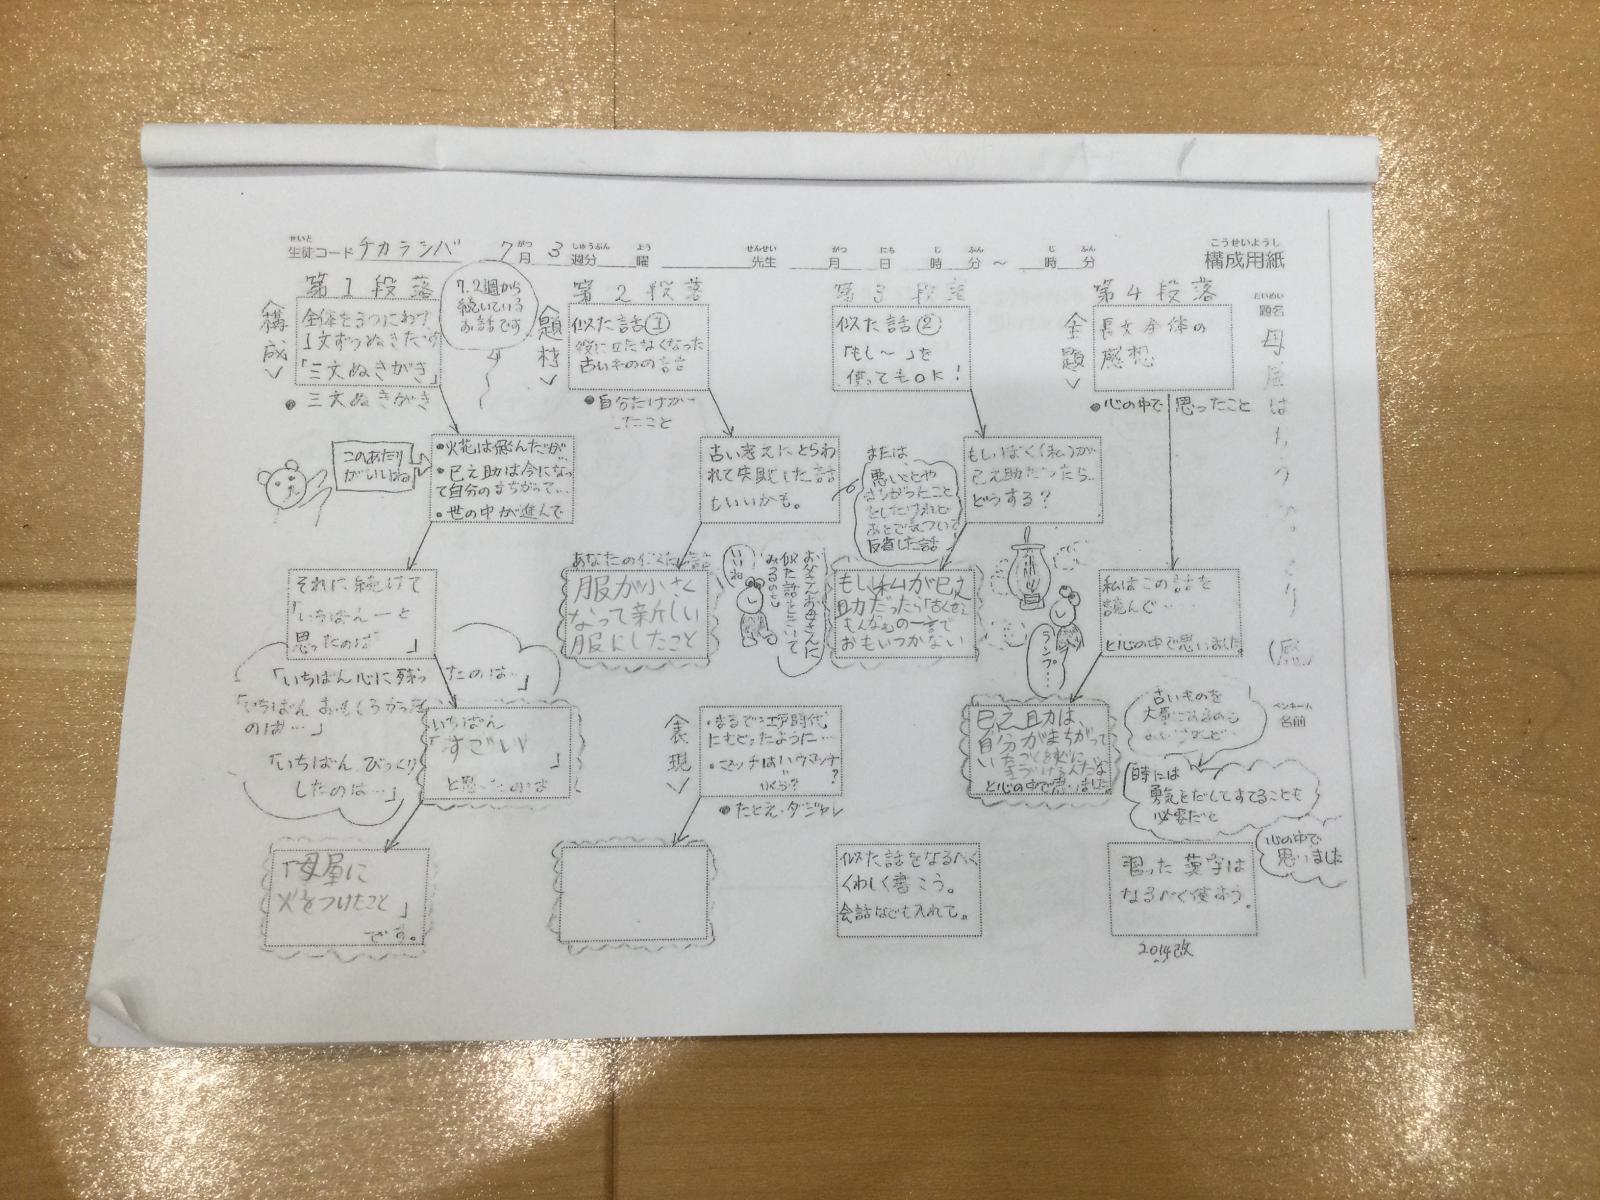 生徒コード チカラシバ 7月 3週分 曜 先生 月 日 時 分 ～ 時 分
せいと がつ しゅうぶん よう せんせい がつ にち じ ふん じ ふん
こうせいようし
構成用紙
だいめい
題名
母屋は
ペンネーム
名前
第1段落
〈構成〉
全体を3つにわけ
1文ずつぬきだす
「三文ぬきがき」
●三文ぬきがき
7.2週から
続いている
お話です
このあたり
がいいね
・火花は飛んだが…
・巳之助は今になっ
て自分のまちがって…
・世の中が進んで
それに続けて
「いちばん―と
思ったのは 」
「いちばん心に残ったのは…」
「いちばんおもしろかった
のは…」
「いちばんびっくり
したのは…」
いちばん
「すごい
」
と思ったのは
「母屋に
火をつけたこと」
です。
第2段落
〈題材〉
似た話①
役に立たなくなった
古いものの話
●自分だけが―
たこと
古い考えにとらわ
れて失敗した話
もいいかも。
あなたの似た話
服が小さく
なって新しい
服にしたこと
いいね
お父さんお母さんに
似た話をきいて
みるのも
〈表現〉
・まるで江戸時代
にもどったように…
・マッチはハウマッチ
＝いくら?
●たとえ・ダジャレ
第3段落
似た話②
「もし～」を
使ってもOK!
または、
悪いことや
まちがったこと
をしたけれど
あとで気づいて
反省した話
もしぼく(私)が
巳之助だったら…
どうする?
もし私が巳之
助だったら「古くせえ
もんなもの一言で
おもいつかない
ランプ…
似た話をなるべく
くわしく書こう。
会話なども入れて。
第4段落
〈主題〉
長文全体の
感想
●心の中で思ったこと
私はこの話を
読んで…
と心の中で思いました。
巳之助は、
自分がまちがって
と心の中で思いました。
古いものを
大事にするのも
時には
勇気をだしてすてることも
必要だと
心の中で
思いました
習った漢字は
なるべく使おう。
2014改